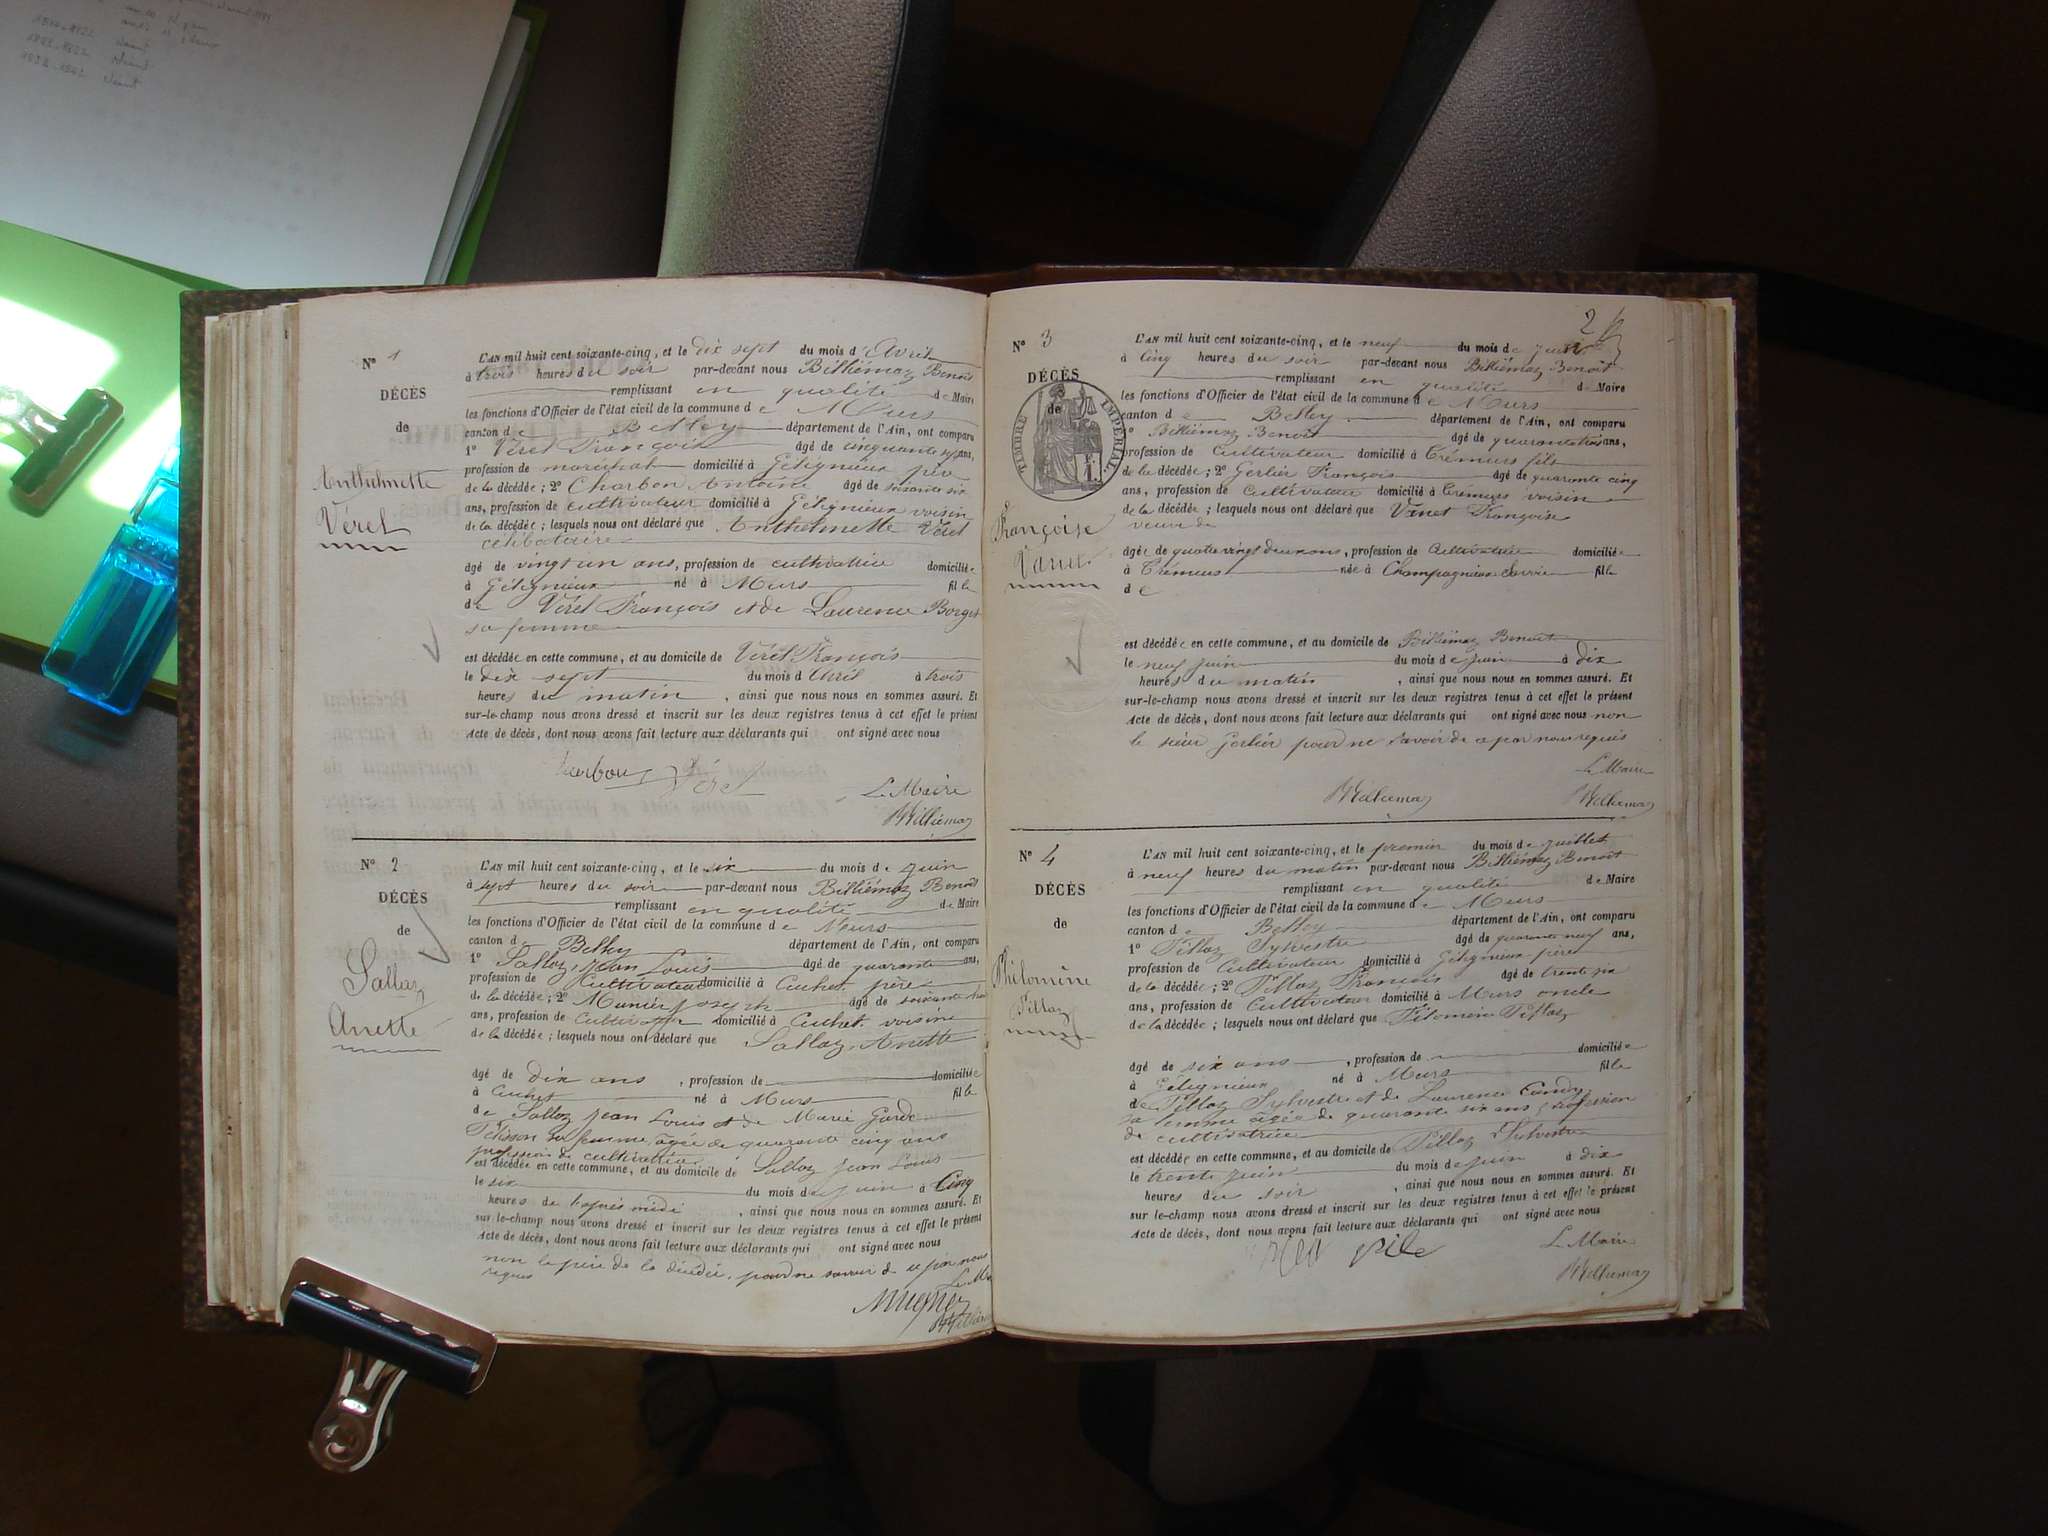 N° 1
DÉCÈS
de
Anthelmette
Véret
L'AN mil huit cent soixante-cinq, et le dix sept du mois d'Avril
à trois heures du soir par-devant nous Billiémaz Benoit
remplissant en qualité de Maire
les fonctions d'Officier de l'état civil de la commune de Murs
canton de Belley département de l'Ain, ont comparu
1° Véret François âgé de cinquante sept ans,
profession de domicilié à Gélignieux père
de la décédée ; 2° Charbon Antoine âgé de soixante six
ans, profession de cultivateur domicilié à Gélignieux voisin
de la décédée ; lesquels nous ont déclaré que Anthelmette Véret
célibataire
âgé de vingt un ans, profession de cultivatrice domiciliée
à Gélignieux né à Murs fille
de Véret François et de Laurence Borget
sa femme
est décédée en cette commune, et au domicile de Véret François
le dix sept du mois d'Avril à trois
heures du matin , ainsi que nous nous en sommes assuré. Et
sur-le-champ nous avons dressé et inscrit sur les deux registres tenus à cet effet le présent
Acte de décès, dont nous avons fait lecture aux déclarants qui ont signé avec nous
Charbon Véret Le Maire
Billiemaz
N° 2
DÉCÈS
de
Sallaz
Anette
L'AN mil huit cent soixante-cinq, et le six du mois de juin
à sept heures du soir par-devant nous Billiémaz Benoit
remplissant en qualité de Maire
les fonctions d'Officier de l'état civil de la commune de Murs
canton de Belley département de l'Ain, ont comparu
1° Sallaz, Jean Louis âgé de quarante ans,
profession de Cultivateur domicilié à Cuchet père
de la décédée ; 2° Munier Joseph âgé de soixante
ans, profession de Cultivateur domicilié à Cuchet voisin
de la décédée ; lesquels nous ont déclaré que Sallaz, Anette
âgé de dix ans , profession de domiciliée
à Cuchet né à Murs fille
de Sallaz Jean Louis et de Marie
sa femme, agée de quarante cinq ans
profession de cultivatrice
est décédée en cette commune, et au domicile de Sallaz jean Louis
le six du mois de juin à Cinq
heures de l'après midi , ainsi que nous nous en sommes assuré. Et
sur-le-champ nous avons dressé et inscrit sur les deux registres tenus à cet effet le présent
Acte de décès, dont nous avons fait lecture aux déclarants qui ont signé avec nous
non le père de la décédée, pour ne savoir de ce par nous
requis
2
N° 3
DÉCÈS
de
TIMBRE IMPÉRIAL
Françoise
Vanet
L'AN mil huit cent soixante-cinq, et le neuf du mois de juin
à Cinq heures du soir par-devant nous Billiémaz Benoit
remplissant en qualité de Maire
les fonctions d'Officier de l'état civil de la commune de Murs
canton de Belley département de l'Ain, ont comparu
1° Billiémaz Benoit âgé de quarante trois ans,
profession de Cultivateur domicilié à Crémurs fils
de la décédée ; 2° Gerlier François âgé de quarante cinq
ans, profession de Cultivateur domicilié à Crémurs voisin
de la décédée ; lesquels nous ont déclaré que Vanet Françoise
veuve de
âgée de quatre vingt deux ans, profession de Cultivatrice domiciliée
à Crémurs née à Champagnieux Savoie fille
de
est décédée en cette commune, et au domicile de Billiémaz Benoit
le neuf juin du mois de juin à dix
heures du matin , ainsi que nous nous en sommes assuré. Et
sur-le-champ nous avons dressé et inscrit sur les deux registres tenus à cet effet le présent
Acte de décès, dont nous avons fait lecture aux déclarants qui ont signé avec nous non
le sieur Gerlier pour ne savoir de ce par nous requis
Le Maire
Billiemaz Billiemaz
N° 4
DÉCÈS
de
Philomène
Tillaz
L'AN mil huit cent soixante-cinq, et le premier du mois de juillet
à neuf heures du matin par-devant nous Billiémaz Benoit
remplissant en qualité de Maire
les fonctions d'Officier de l'état civil de la commune de Murs
canton de Belley département de l'Ain, ont comparu
1° Tillaz Sylvestre âgé de quarante neuf ans,
profession de Cultivateur domicilié à Gélignieux père
de la décédée ; 2° Tillaz François âgé de trente six
ans, profession de Cultivateur domicilié à Murs oncle
de la décédée ; lesquels nous ont déclaré que Filomène Tillaz
âgé de six ans , profession de domiciliée
à Gélignieux né à Murs fille
de Tillaz Sylvestre et de Laurence
sa femme agée de quarante six ans profession
de cultivatrice
est décédée en cette commune, et au domicile de Tillaz Sylvestre
le trente juin du mois de juin à dix
heures du soir , ainsi que nous nous en sommes assuré. Et
sur le-champ nous avons dressé et inscrit sur les deux registres tenus à cet effet le présent
Acte de décès, dont nous avons fait lecture aux déclarants qui ont signé avec nous
Le Maire
Billiemaz